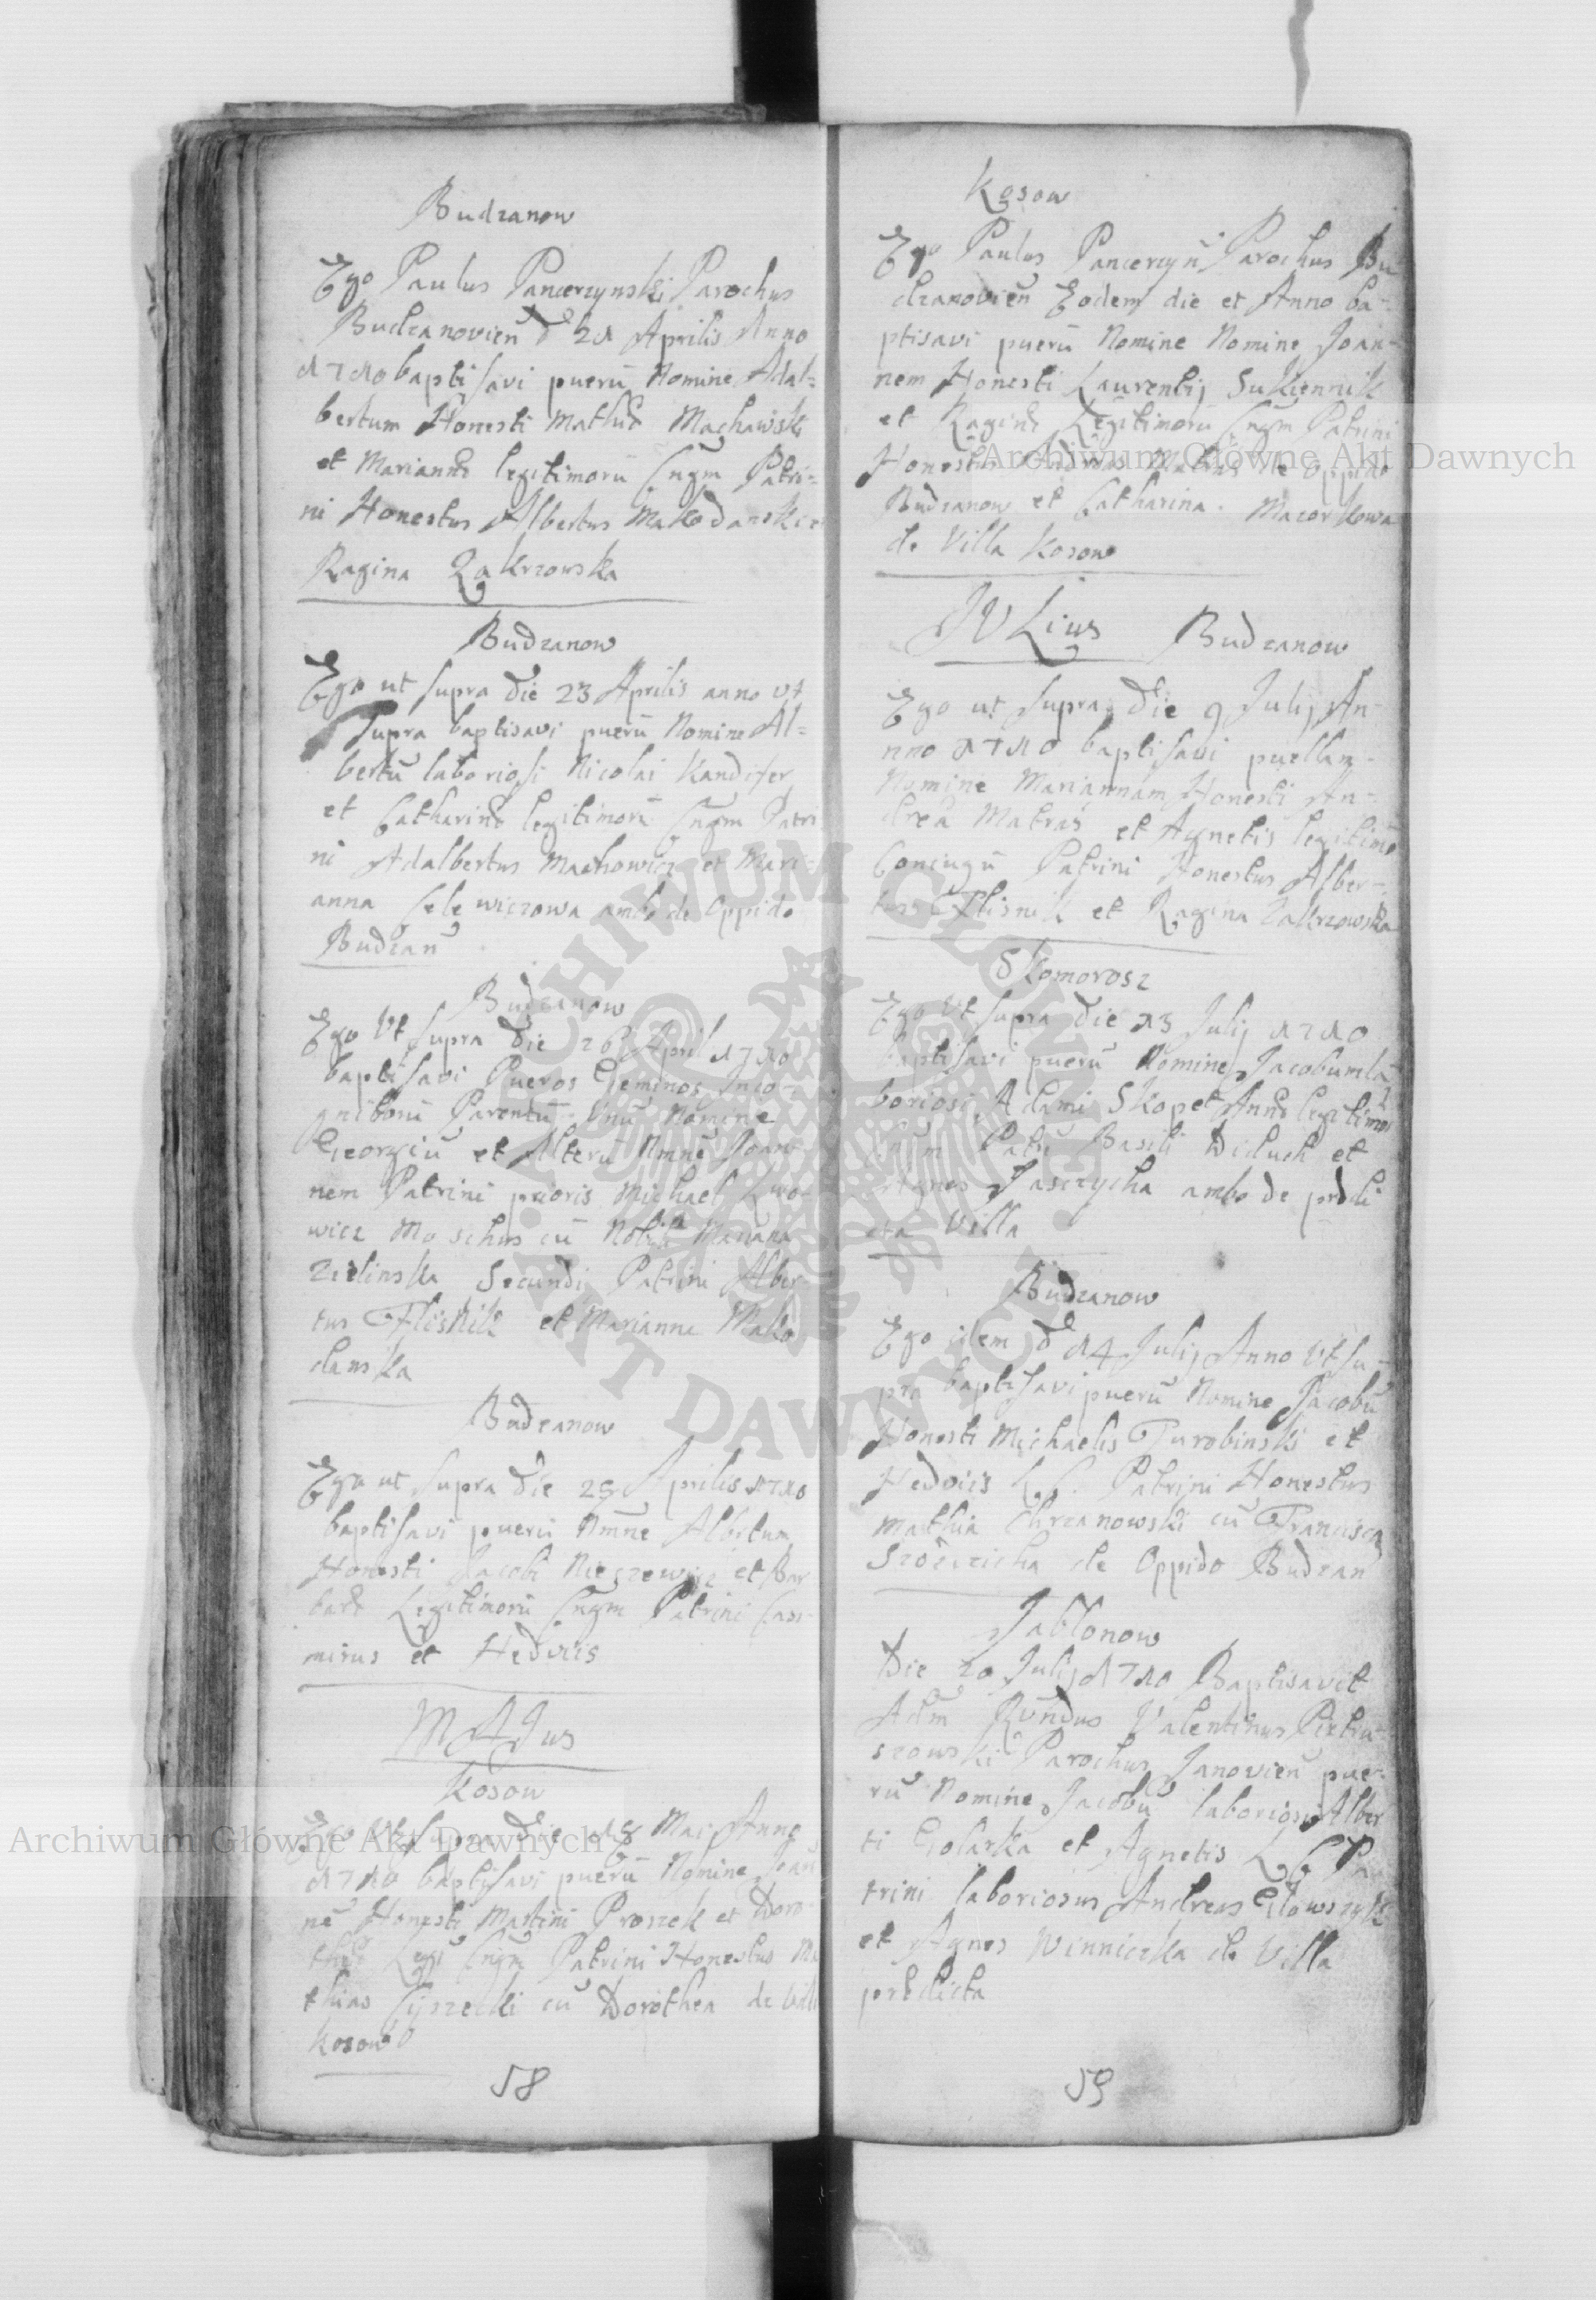 Budzanow
Ego Paulus Pancerzynski Parochus
Budzanovien̄ d 21 Aprilis Anno
1710 baptisavi puerū Nomine Adal=
bertum Honesti Mathiæ Machawski
et Mariannæ legitimorū Cngm Patri=
ni Honestus Albertus Makodanski et
Ragina Zakrzowska
Budzanow
Ego ut supra die 23 Aprilis anno vt
Supra baptisavi puerū Nomine Al=
bertū laboriosi Nicolai Kandifer
et Catharinæ legitimorū Cngm Patri
ni Adalbertus Machowicz et Mari-
anna Celewiczowa ambo de Oppido
Budzan
Budzanow
Ego Vt supra Die 26 April 1710
baptisavi Pueros Geminos Inco-
gnitorū Parentū Unū Nomine
Georgiū et Alterū Nmne Joan-
nem Patrini prioris Michael
wicz Moschus cū Nobili Mariana
Zielinska Secundi Patrini Alber-
tus Flisnik et Marianna Mako
danska
Budzanow
Ego ut supra Die 28 Aprilis 1710
baptisavi puerū Nmne Albertum
Honesti Jacobi Nieszewicz et Bar
baræ Legitimorū Cngm Patrini Casi-
mirus et Hedvis
MAJus
Kosow
Ego Vt supra Die 18 Mai Anno
1710 baptisavi puerū Nomine Joan
nē Honesti Martini Proszek et Doro
theæ Legi Cngm Patrini Honestus Ma
thias Cyszecki cū Dorothea de Villa
Kosow
58
Kosow
Ego Paulus Pancerzyn̄ Parochus Bu
dzanovien̄ Eodem die et Anno ba-
ptisavi puerū Nomine Nomine Joan-
nem Honesti Laurentij Sukiennik
et Raginæ Legitimorū Cngm Patrini
Honestus Andreas Matras de Oppido
Budzanow et Catharina Mazorkowa
de Villa Kosow
JVLius Budzanow
Ego ut Supra Die 9 Julij An-
nno 1710 baptisavi puellam
Nomine Mariannam Honesti An-
dreæ Matras et Agnetis legitimo
Coniugū Patrini Honestus Alber-
tus Flisnik et Ragina Zakrzowska
Skomorosz
Ego Vt supra Die 13 Julij 1710
baptisavi puerū Nomine Jacobum la
boriosi Adami Skop et Annæ legitimor
Cngm Patri Basili Diduch et
Agnes Jasczycha ambo de prædi
cta Villa
Budzanow
Ego idem d 14 Julij Anno Vt su-
pra baptisavi puerū Nomine Jacobū
Honesti Michaelis Turobinski et
Hedvis L. C. Patrini Honestus
Mathia Chrzanowski cū Francisca
de Oppido Budzan
Jablonow
Die 20 Julij 1710 Baptisavit
Adm Rv̄ndus Valentinus Pietru-
szowski Parochus Janovien̄ pue-
rū Nomine Jacobū laboriosi Alber
ti Golarka et Agnetis L C Pa
trini laboriosus Andreas Glowszyk
et Agnes Winniczka de Villa
prædicta
59
Archiwum Główne Akt Dawnych
Archiwum Główne Akt Dawnych
ARCHIWUM GŁÓWNE AKT DAWNYCH